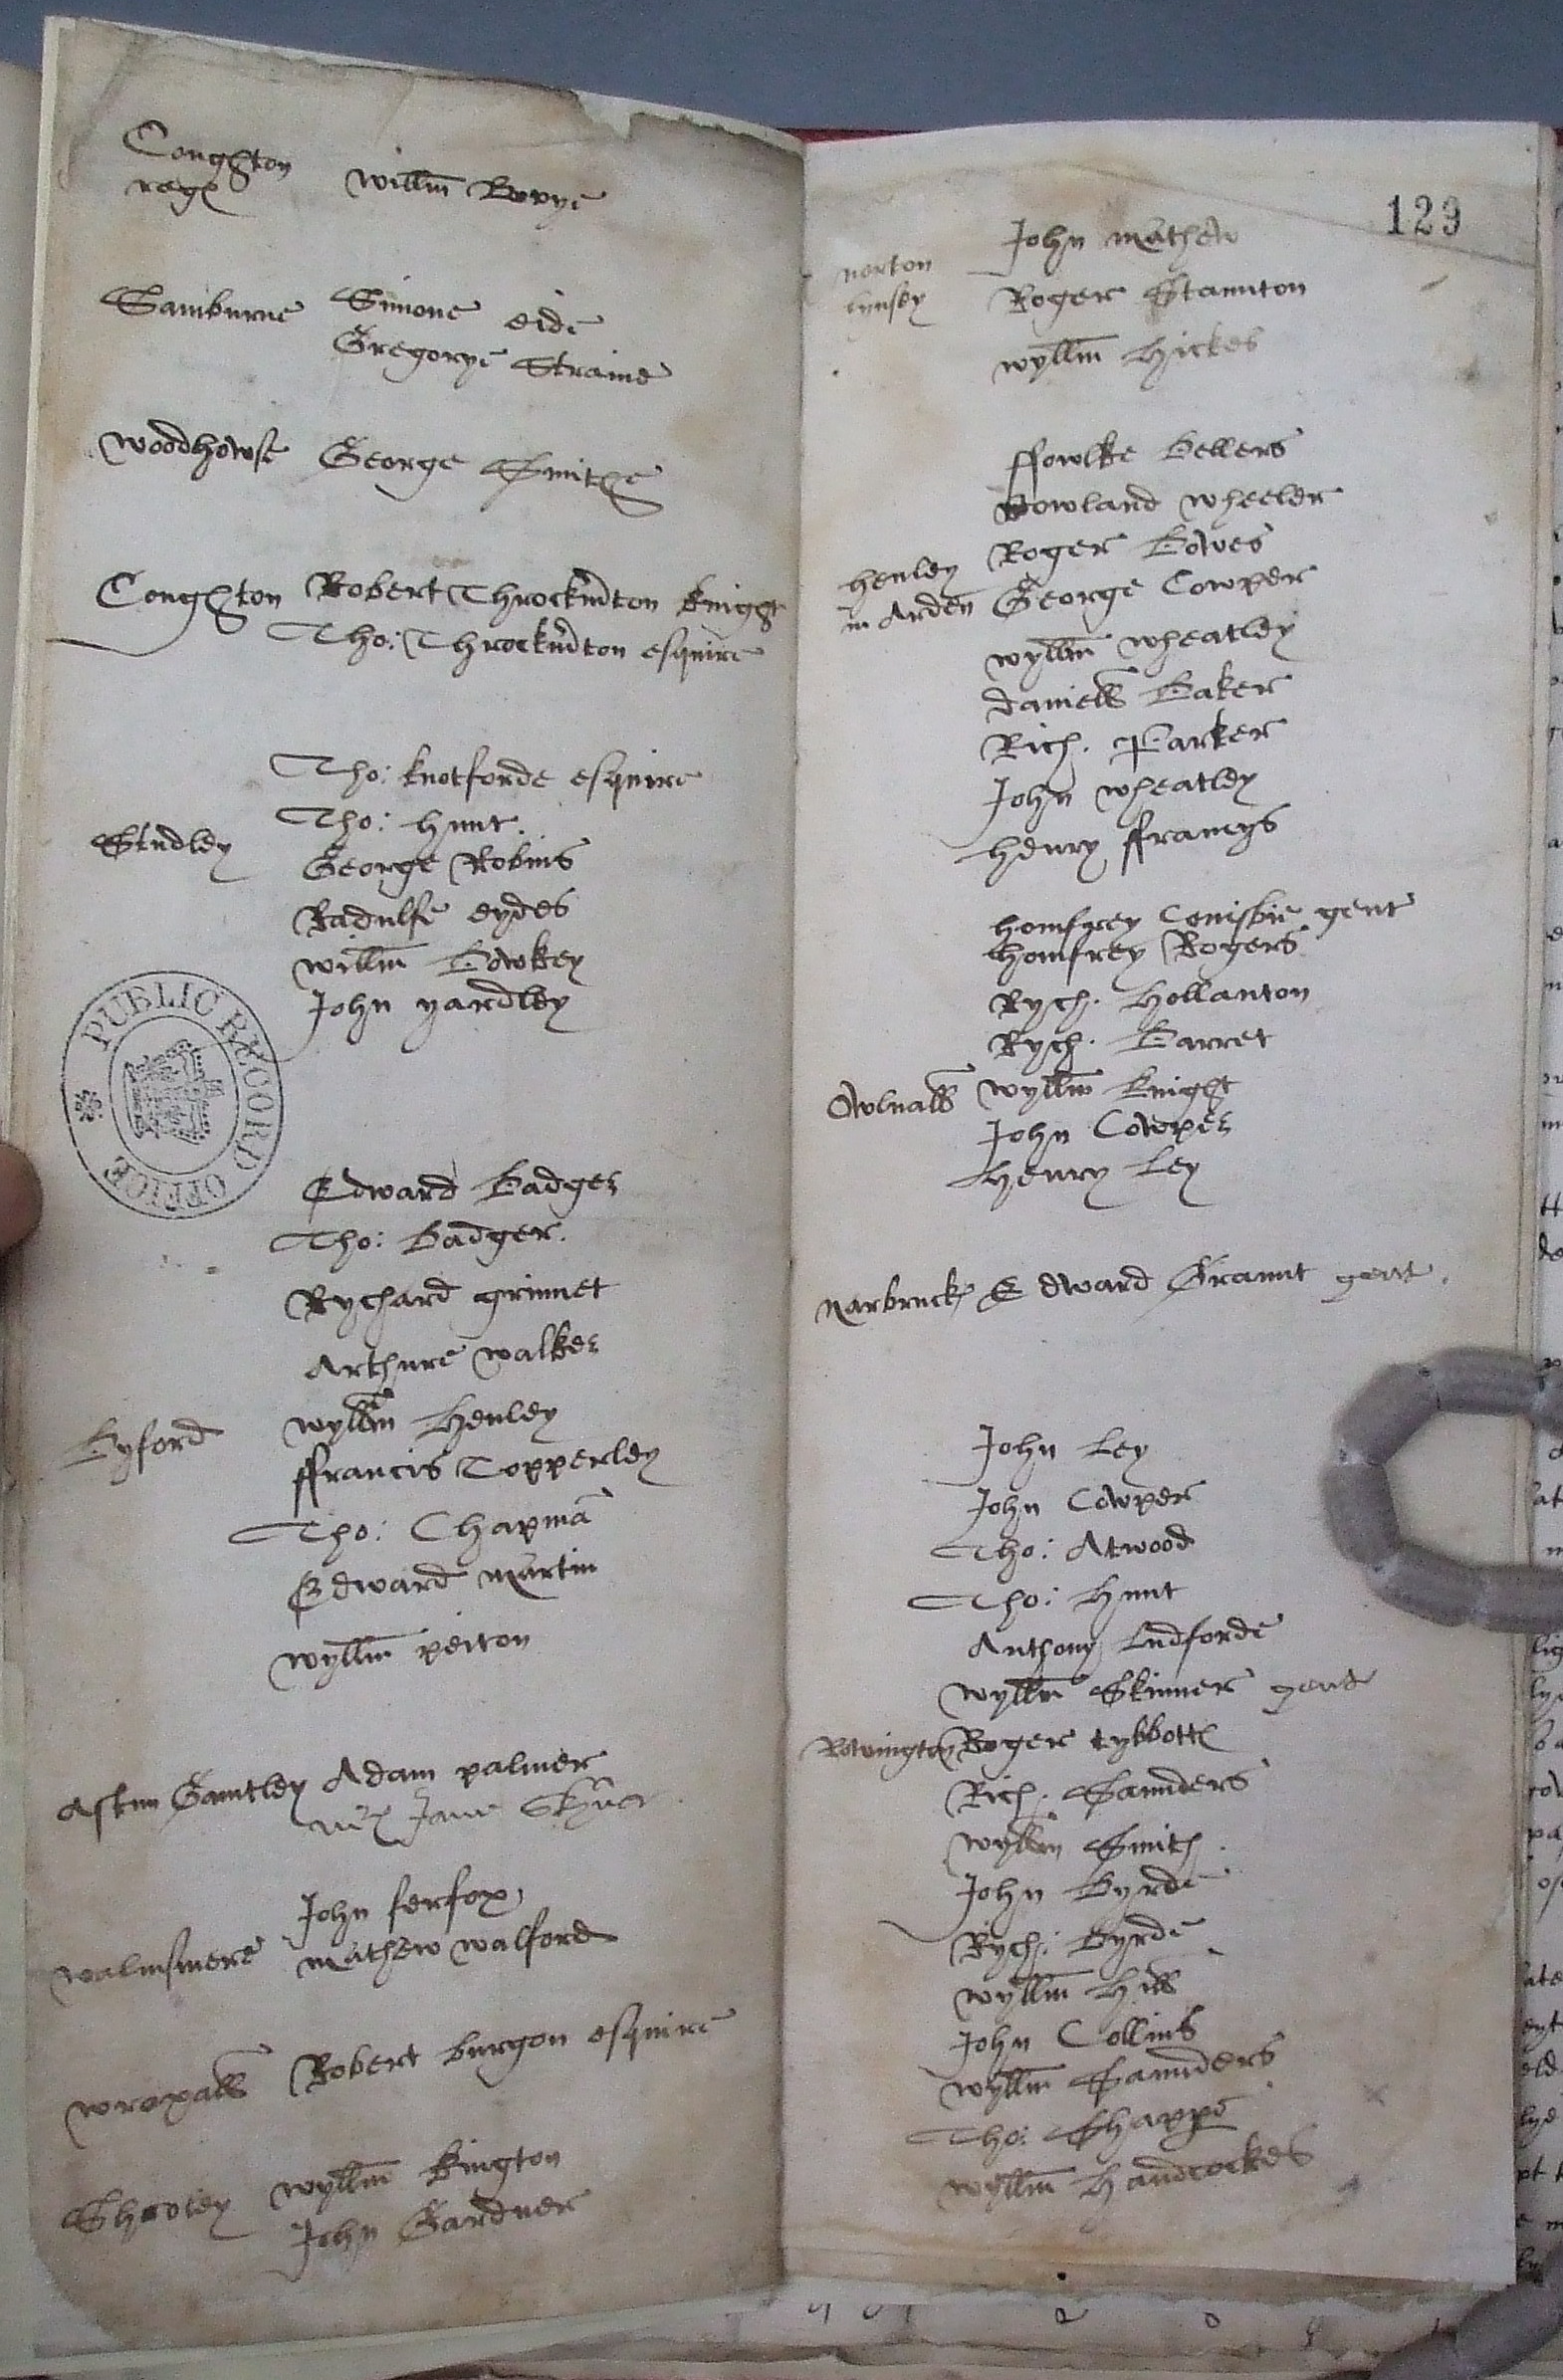 Coughton willm Bovye
rege
Samburne Simone eide
Gregorye Straine
woodhowse George Smithe
Coughton Robert Throckmton knight
Tho: Throckmton esquire
Tho: knotforde esquire
Tho: Hunt.
Studley George Robins
Radulfe eydes
willm Bowkey
John yardley
PUBLIC RECORD OFFICE
Edward Badger
Tho: Badger.
Rychard grinnet
Arthure walker
Byford wyllm Henley
ffrancis Topperley
Tho: Chapma
Edward martin
wyllm peiton
Aston Cantley Adam palmer
Jane
John ferfox
walmsmere mathew walford
wroxall Robert burgon esquire
Shotley wyllm Kington
John Gardner
129
John mathew
norton Roger Staunton
lynsey
wyllm Hickes
ffowlke Bellers
Rowland wheeler
henley Roger Eowes
in Arden George Cowper
wyllm wheatley
daniell Baker
Rich. Parker
John wheatley
Henry ffrancys
homfrey Conisbie gent
homfrey Rogers
Rych. Hollanton
Rych. Barret
Owlnall wyllm knight
John Cowper
Henry Ley
Narbruck Edward Graunt gent.
John Ley
John Cowper
Tho: Atwood
Tho: Hunt
Anthony Ludforde
wyllm Skinner gent
Rowington Roger tybbott
Rich. Saunders
wyllm Smith.
John Byrde
Rych: Byrde
wyllm Hill
John Collins
wyllm Saunders
Tho: Shappe
wyllm Handcockes